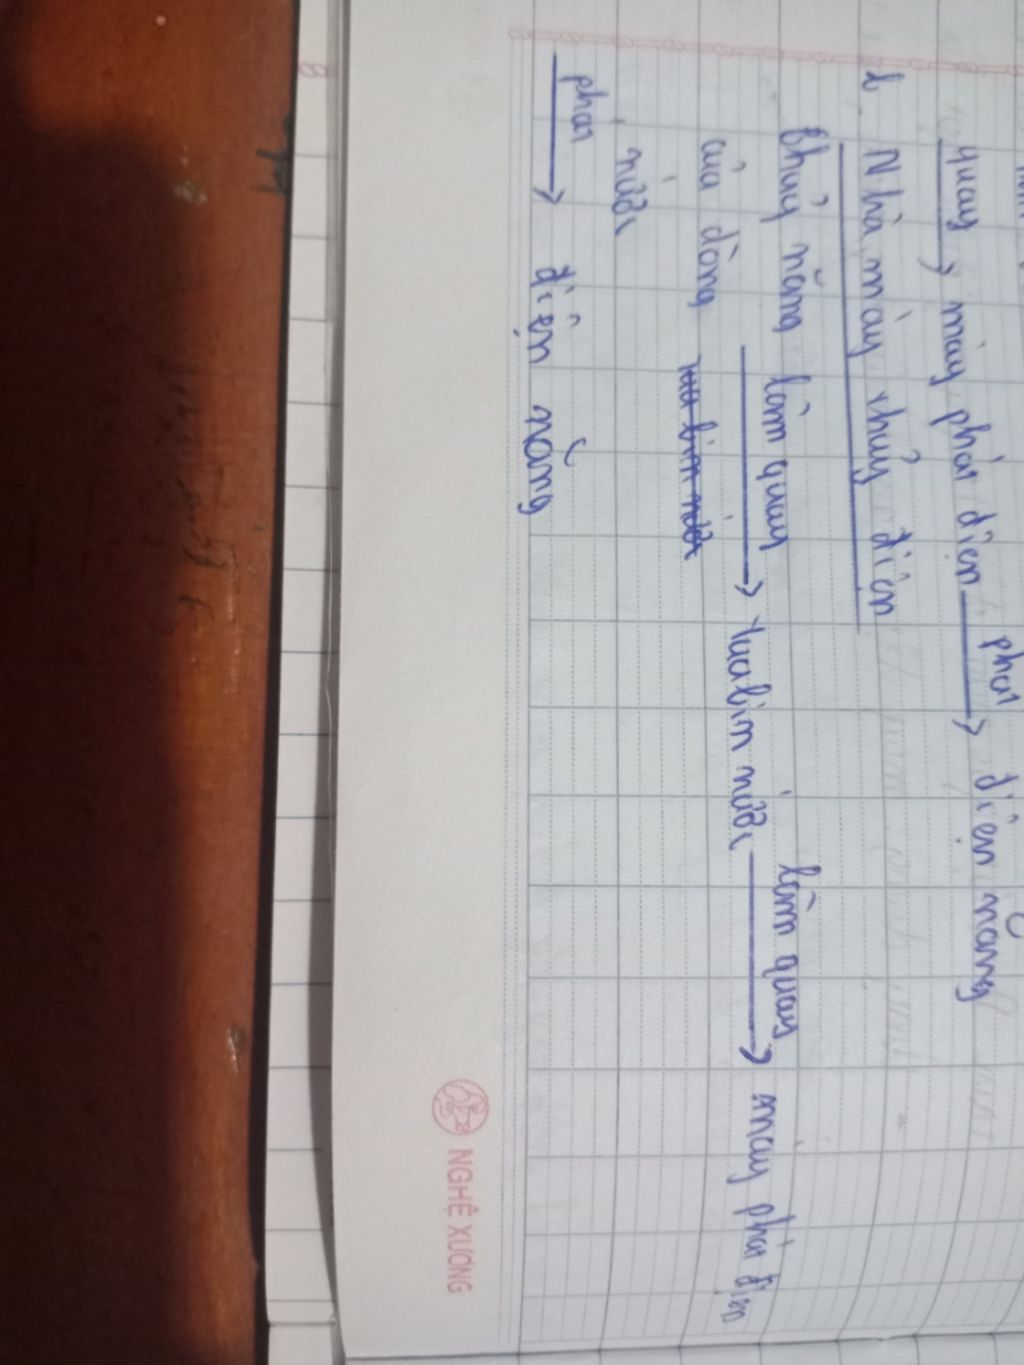 quay → máy phát điện phát → điện năng
b Nhà máy thuỷ điện
Thuỷ năng làm quay → tuabin nước làm quay → máy phát điện
của dòng
nước
phát → điện năng
NGHỆ XƯƠNG